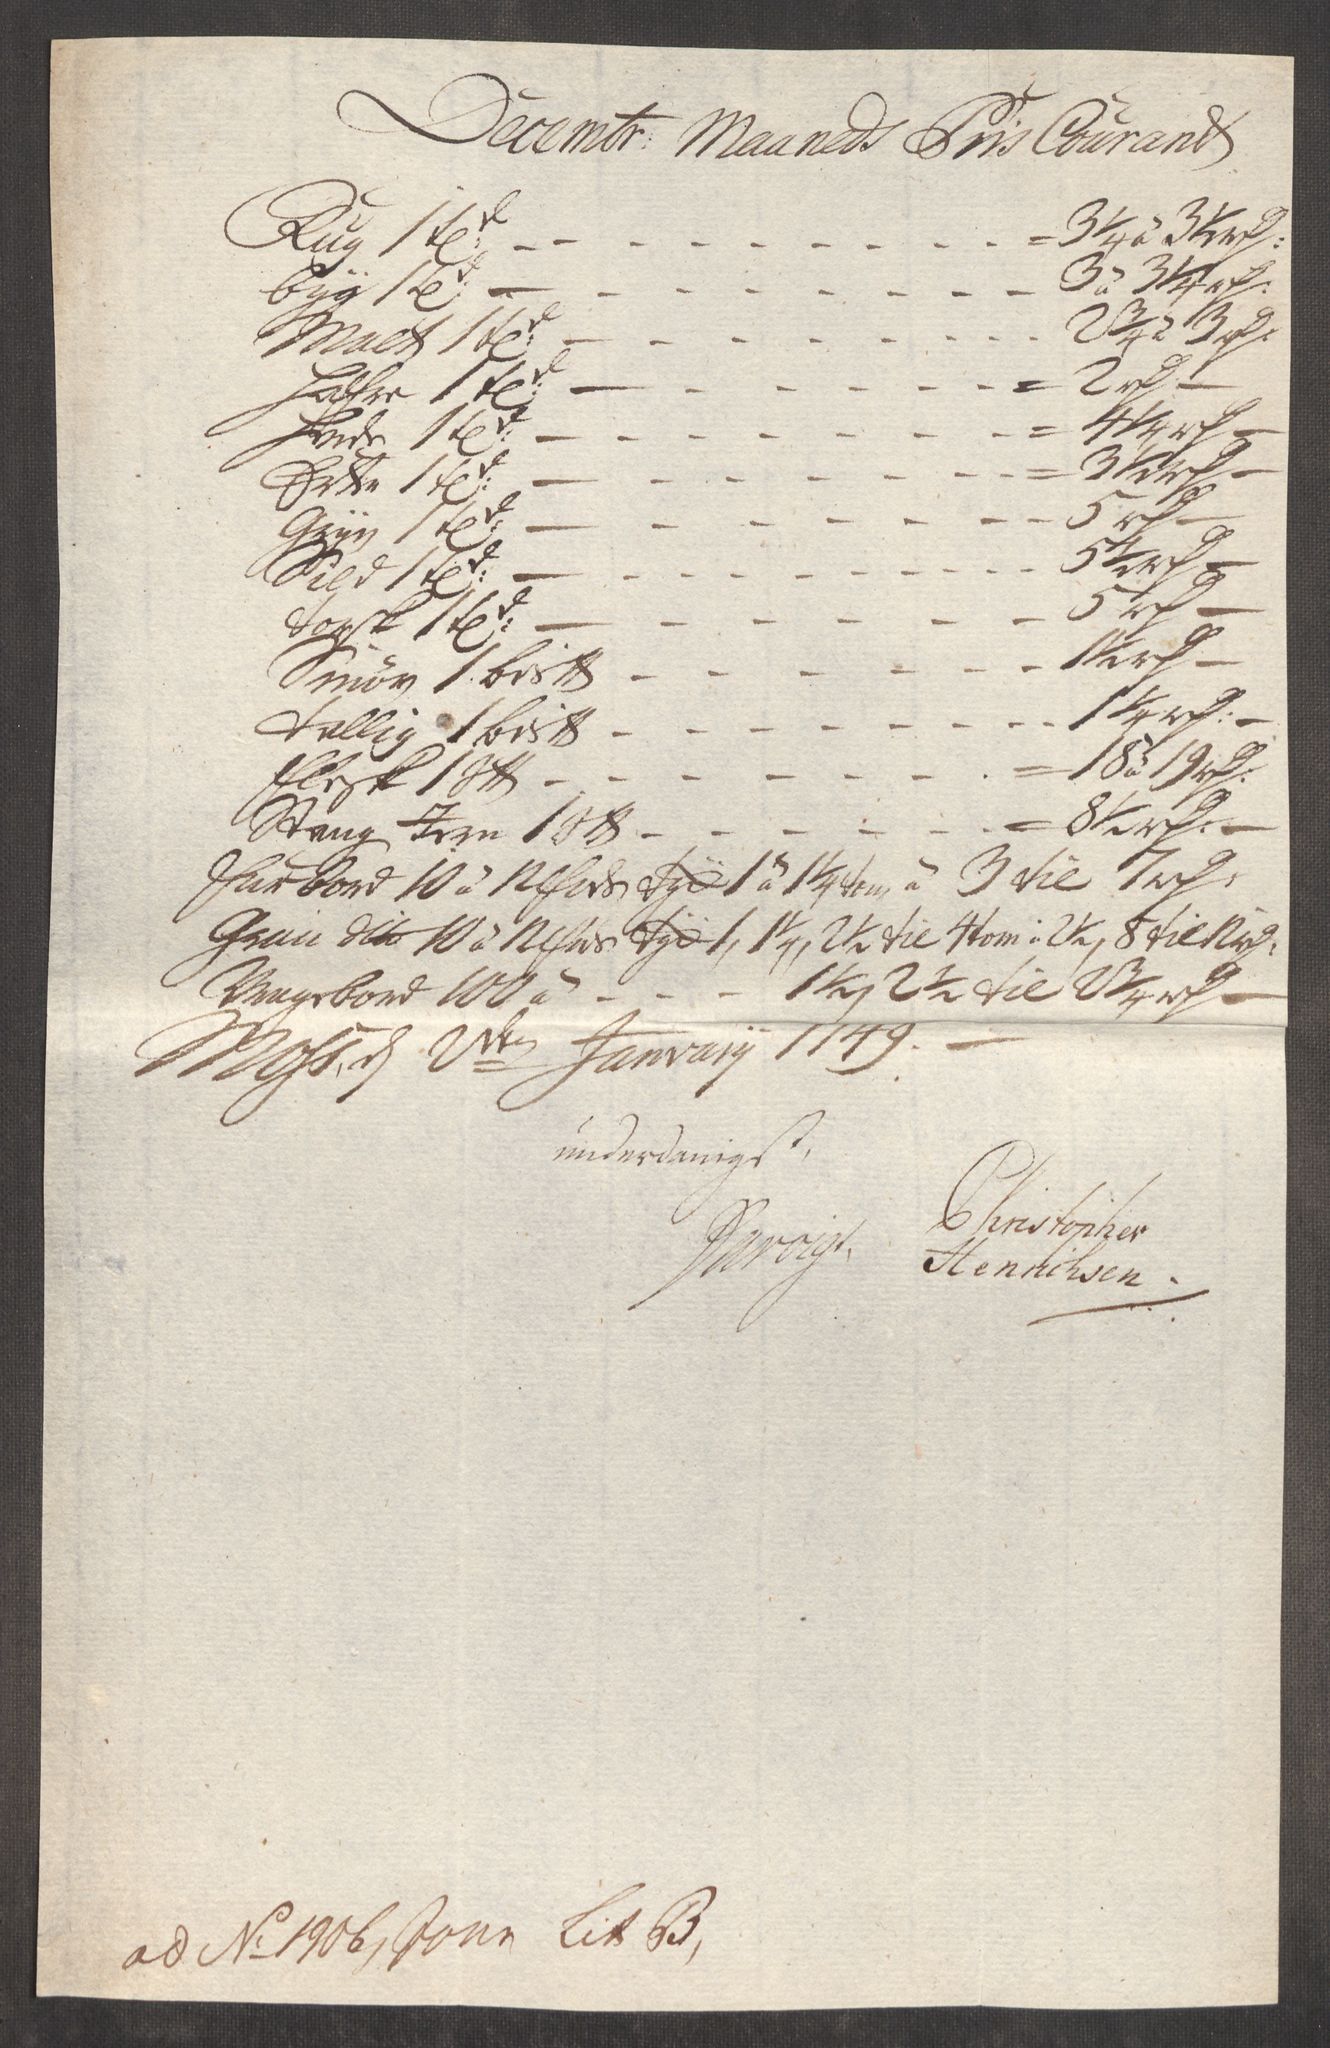 Decembr: Maaneds Pris Courant
Rug 1 td: - - - - - - - - = 3 1/4 à 3 1/2 rd:
byg 1 td: - - - - - - - - 3 à 3 1/4 rd:
Malt 1 td: - - - - - - - - 2 3/4 à 3 rd:
hafre 1 td: - - - - - - - = 2 rd -
hvede 1 td: - - - - - - - = 4 1/4 rd -
Erter 1 td: - - - - - - - = 3 1/2 rd -
Gryn 1 td: - - - - - - - - 5 rd -
Sild 1 td: - - - - - - - - 5 1/2 rd -
torsk 1 td: - - - - - - - - 5 rd -
Smør 1. bis ℔ - - - - - - - 1 1/2 rd -
tallig 1 bis ℔ - - - - - - - 1 1/4 rd: -
flesk 1 S℔ - - - - - - - = 18 à 19 rd:
Stang Jern 1 S℔ - - - - - - = 8 1/2 rd: -
Fúr bord 10 à 12 fods tyl 1 à 1 1/4 tom à 3 til 7 rd:
Gran dito 10 à 12 fods tyl 1, 1 1/4, 2 1/2 til 4 tom à 2 1/2, 8 til 12 rd:
Vragebord 100 à - - - 1 1/2, 2 1/2 til 2 3/4 rd -
Moss, d 2den January 1749. -
underdanigst,
Christopher
Henrichsen.
ad No 1906, Jour Litt B,